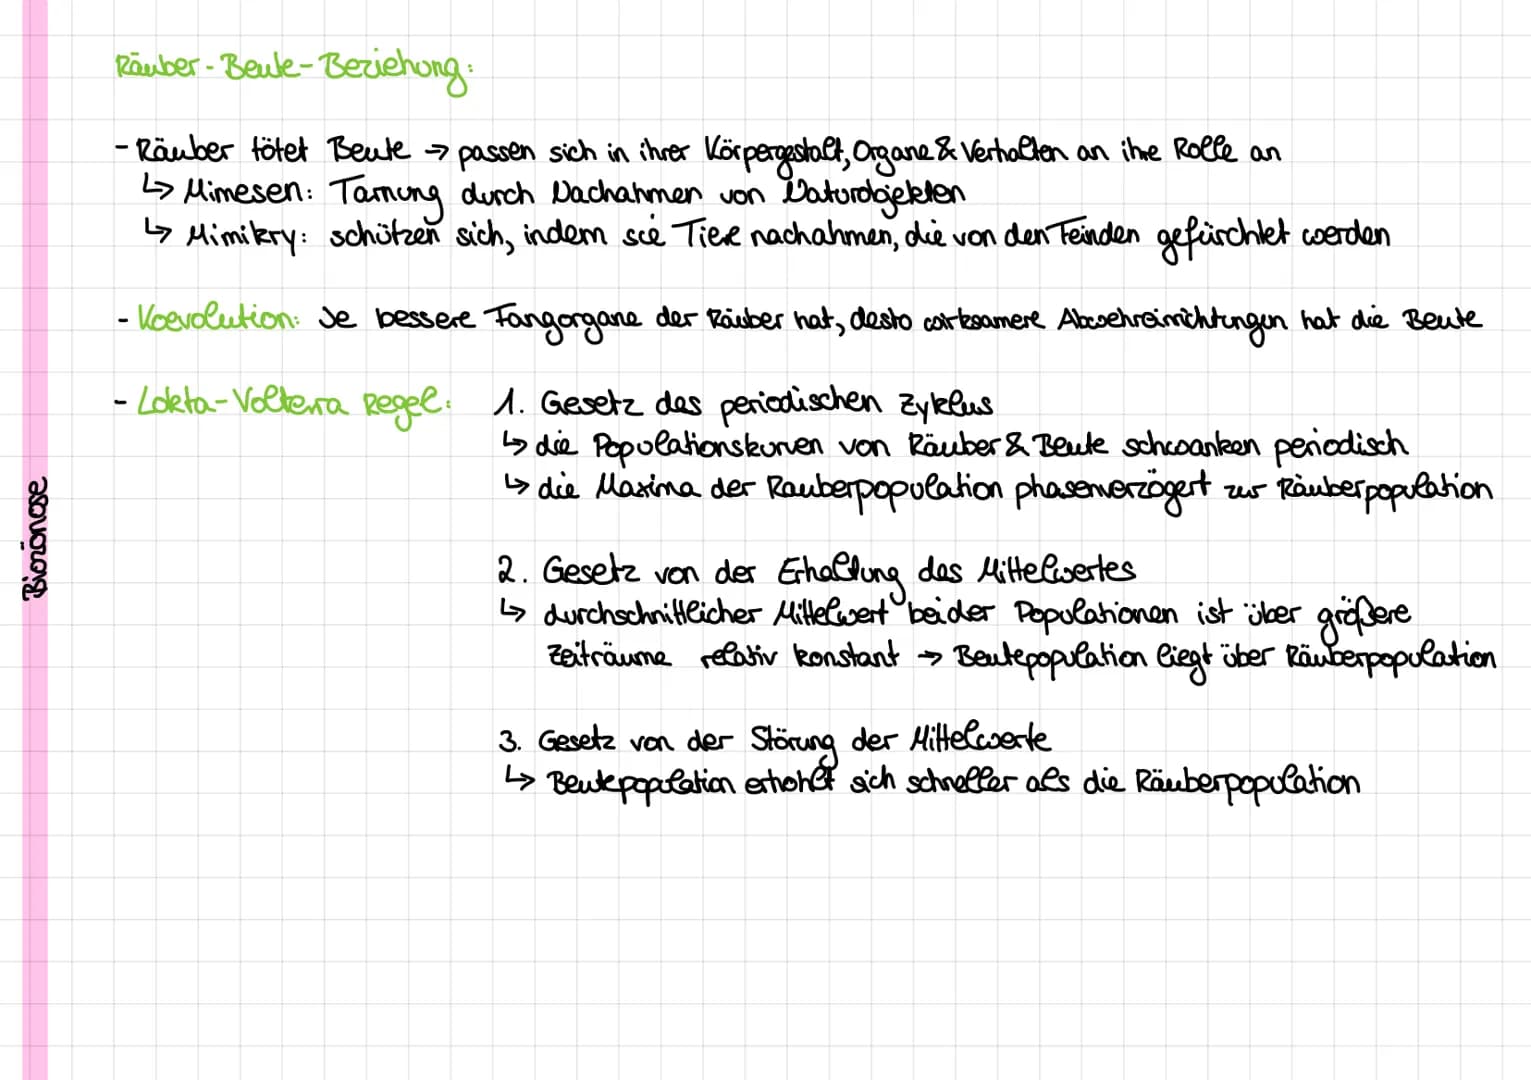 Räuber-Beute-Beziehung:
- Räuber tötet Beute → passen sich in ihrer Körpergestalt, Organe & Verhalten an ihre Rolle an
↳ Mimesen: Tarnung durch Nachahmen von Naturobjekten
↳ Mimikry: schützen sich, indem sie Tiere nachahmen, die von den Feinden gefürchtet werden
- Koevolution: Je bessere Fangorgane der Räuber hat, desto wirksamere Abwehreinrichtungen hat die Beute
- Lokta-Volterra Regel: 1. Gesetz des periodischen Zyklus
↳ die Populationskurven von Räuber & Beute schwanken periodisch
↳ die Maxima der Rauberpopulation phasenverzögert zur Räuberpopulation
2. Gesetz von der Erhaltung des Mittelwertes
↳ durchschnittlicher Mittelwert beider Populationen ist über größere
Zeiträume relativ konstant → Beutepopulation liegt über Räuberpopulation
3. Gesetz von der Störung der Mittelwerte
↳ Beutepopulation erhohlt sich schneller als die Räuberpopulation
Biozönose